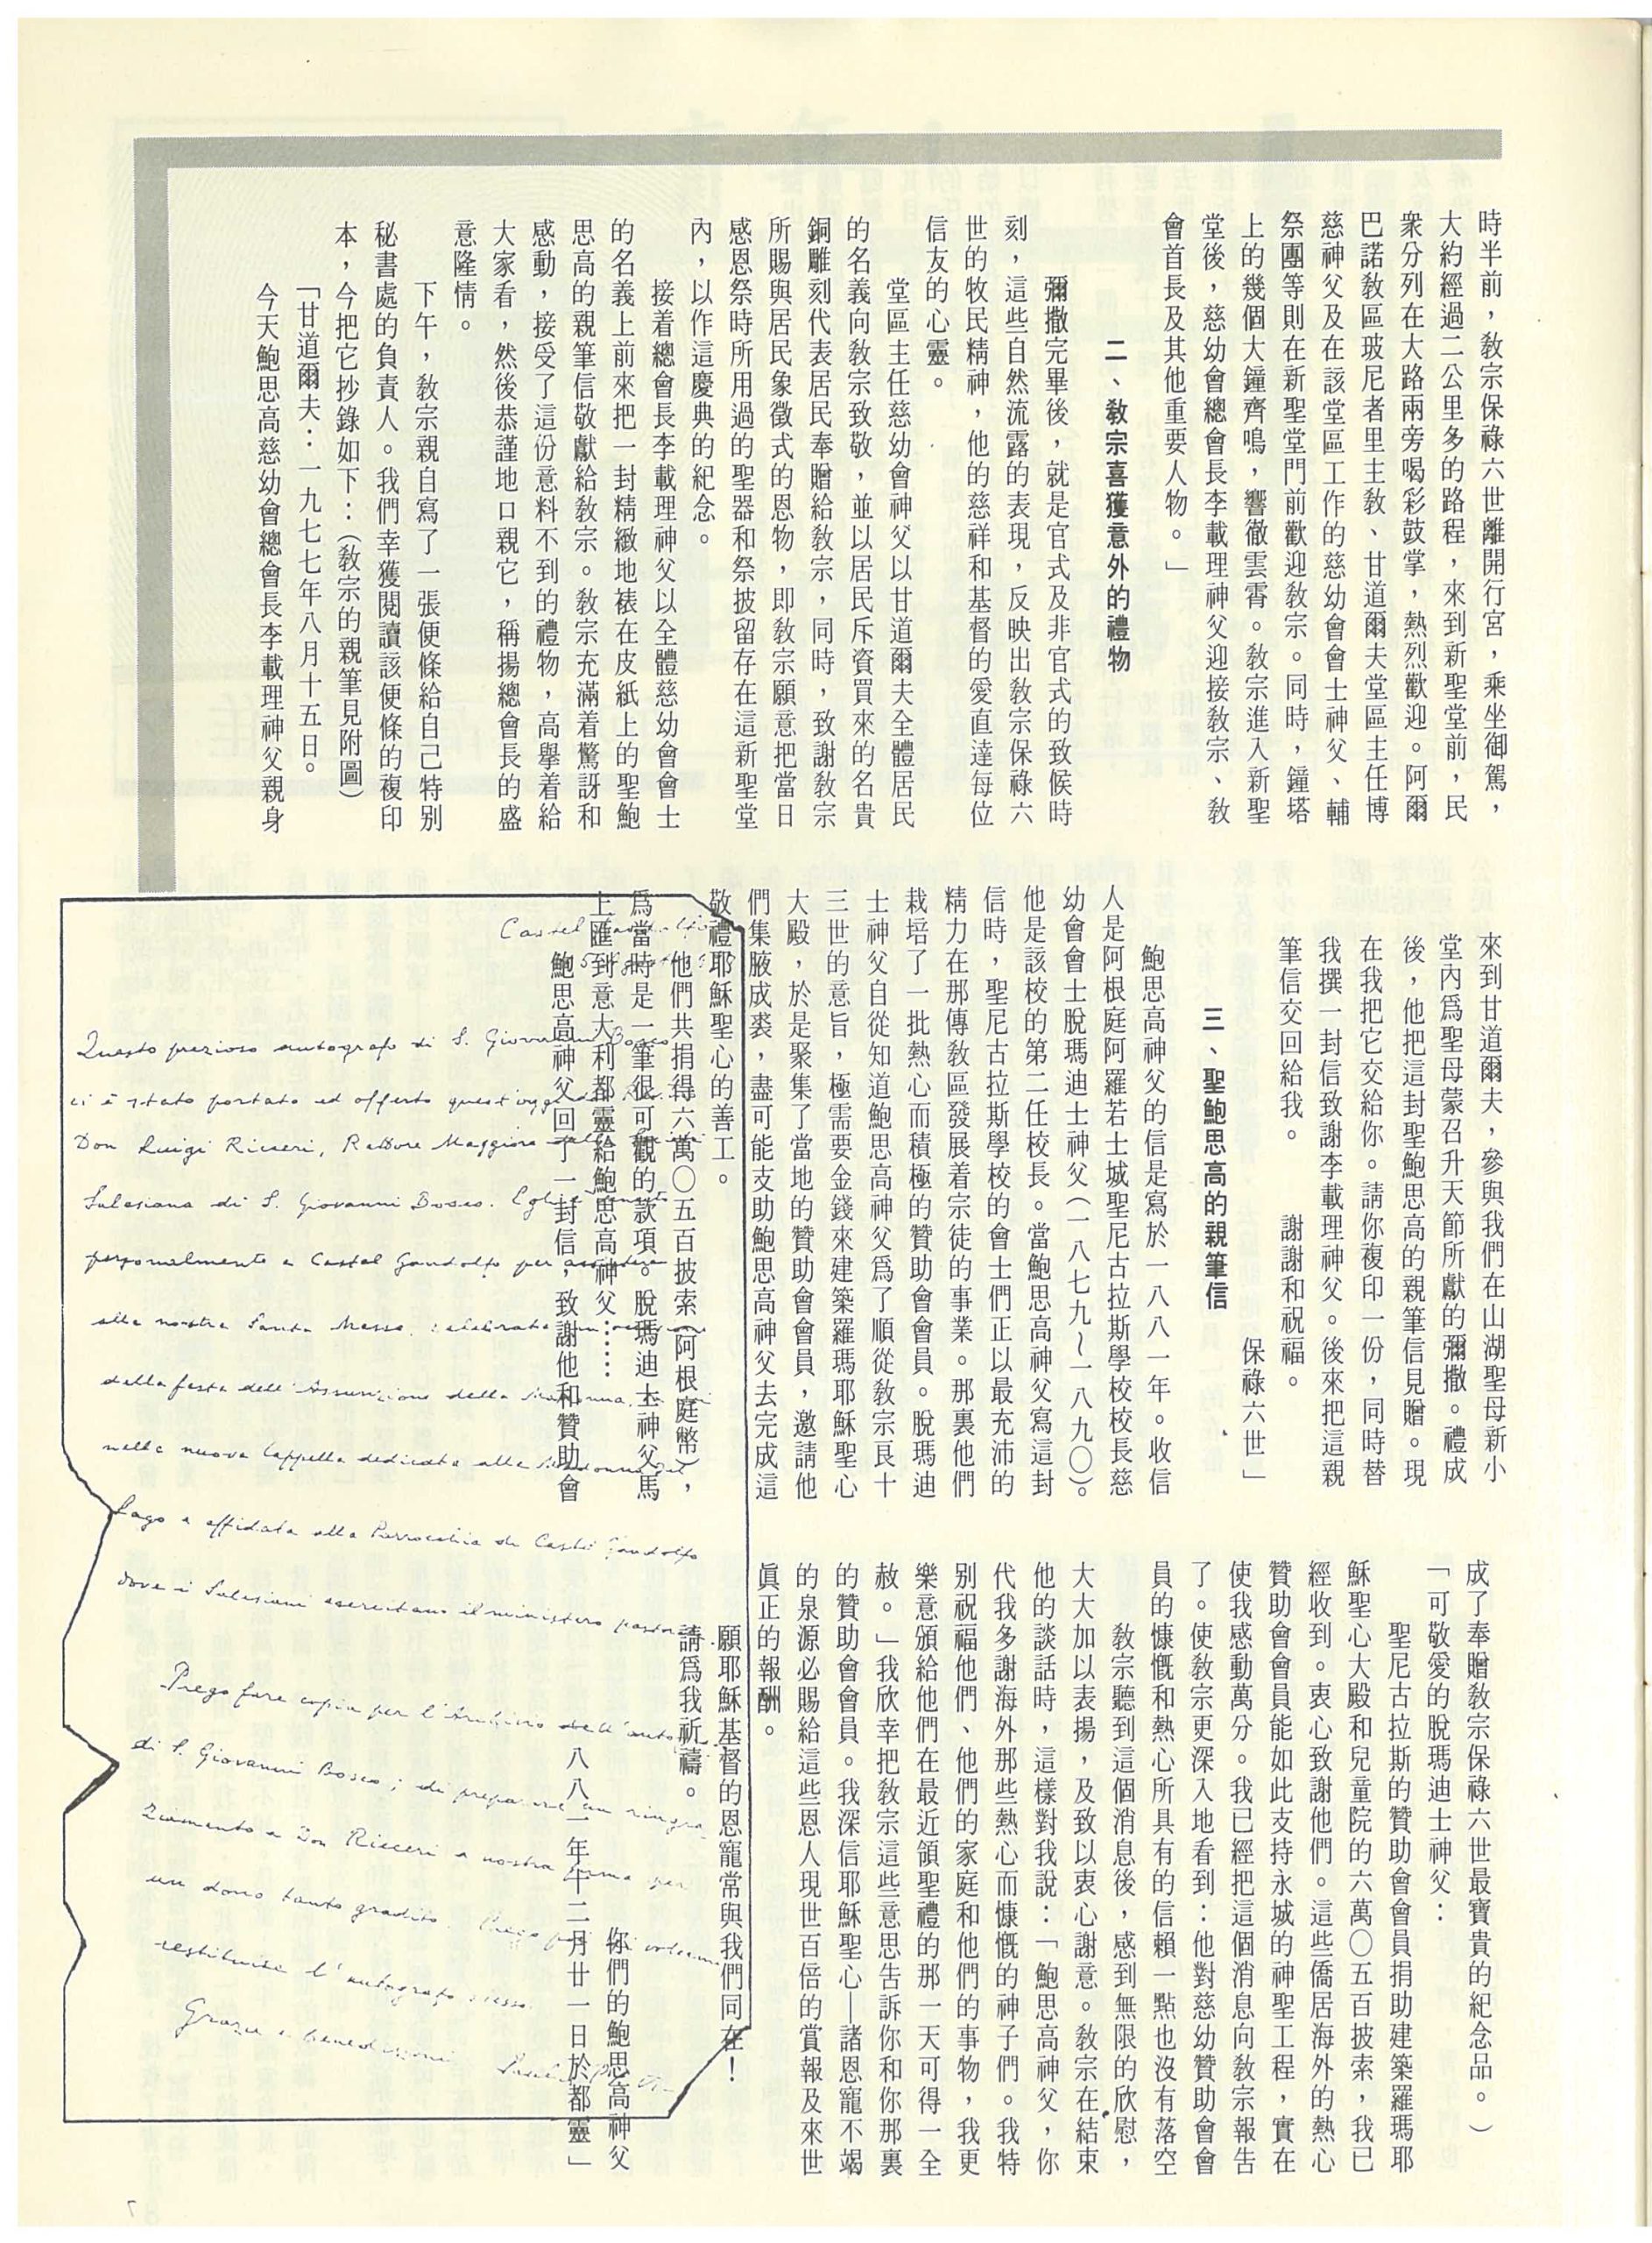 時半前，教宗保祿六世離開行宮，乘坐御駕，
大約經過二公里多的路程，來到新聖堂前，民
衆分列在大路兩旁喝彩鼓掌，熱烈歡迎。阿爾
巴諾敎區玻尼者里主敎、甘道爾夫堂區主任博
慈神父及在該堂區工作的慈幼會會士神父、輔
祭團等則在新聖堂門前歡迎敎宗。同時，鐘塔
上的幾個大鐘齊鳴，響徹雲霄。敎宗進入新聖
堂後，慈幼會總會長李載理神父迎接敎宗、敎
會首長及其他重要人物。」
二、敎宗喜獲意外的禮物
彌撒完畢後，就是官式及非官式的致候時
刻，這些自然流露的表現，反映出敎宗保祿六
世的牧民精神，他的慈祥和基督的愛直達每位
信友的心靈。
堂區主任慈幼會神父以甘道爾夫全體居民
的名義向敎宗致敬，並以居民斥資買來的名貴
銅雕刻代表居民奉贈給敎宗，同時，致謝敎宗
所賜與居民象徵式的恩物，即敎宗願意把當日
感恩祭時所用過的聖器和祭披留存在這新聖堂
內，以作這慶典的紀念。
接着總會長李載理神父以全體慈幼會會士
的名義上前來把一封精緻地裱在皮紙上的聖鮑
思高的親筆信敬獻給敎宗。敎宗充滿着驚訝和
感動，接受了這份意料不到的禮物，高舉着給
大家看，然後恭謹地口親它，稱揚總會長的盛
意隆情。
下午，敎宗親自寫了一張便條給自己特別
秘書處的負責人。我們幸獲閱讀該便條的複印
本，今把它抄錄如下：（敎宗的親筆見附圖）
「甘道爾夫：一九七七年八月十五日。
今天鮑思高慈幼會總會長李載理神父親身
來到甘道爾夫，參與我們在山湖聖母新小
堂內爲聖母蒙召升天節所獻的彌撒。禮成
後，他把這封聖鮑思高的親筆信見贈。現
在我把它交給你。請你複印一份，同時替
我撰一封信致謝李載理神父。後來把這親
筆信交回給我。　謝謝和祝福。
保祿六世」
三、聖鮑思高的親筆信
鮑思高神父的信是寫於一八八一年。收信
人是阿根庭阿羅若士城聖尼古拉斯學校校長慈
幼會會士脫瑪迪士神父（一八七九～一八九〇）。
他是該校的第二任校長。當鮑思高神父寫這封
信時，聖尼古拉斯學校的會士們正以最充沛的
精力在那傳敎區發展着宗徒的事業。那裏他們
栽培了一批熱心而積極的贊助會會員。脫瑪迪
士神父自從知道鮑思高神父爲了順從敎宗良十
三世的意旨，極需要金錢來建築羅瑪耶穌聖心
大殿，於是聚集了當地的贊助會會員，邀請他
們集腋成裘，盡可能支助鮑思高神父去完成這
敬禮耶穌聖心的善工。
他們共捐得六萬〇五百披索（阿根庭幣），
爲當時是一筆很可觀的款項。脫瑪迪士神父馬
上匯到意大利都靈給鮑思高神父……
鮑思高神父回了一封信，致謝他和贊助會
成了奉贈敎宗保祿六世最寶貴的紀念品。）
「可敬愛的脫瑪迪士神父：
聖尼古拉斯的贊助會會員捐助建築羅瑪耶
穌聖心大殿和兒童院的六萬〇五百披索，我已
經收到。衷心致謝他們。這些僑居海外的熱心
贊助會會員能如此支持永城的神聖工程，實在
使我感動萬分。我已經把這個消息向敎宗報告
了。使敎宗更深入地看到：他對慈幼贊助會會
員的慷慨和熱心所具有的信賴一點也沒有落空
敎宗聽到這個消息後，感到無限的欣慰，
大大加以表揚，及致以衷心謝意。敎宗在結束
他的談話時，這樣對我說：「鮑思高神父，你
代我多謝海外那些熱心而慷慨的神子們。我特
別祝福他們、他們的家庭和他們的事物，我更
樂意頒給他們在最近領聖禮的那一天可得一全
赦。」我欣幸把敎宗這些意思吿訴你和你那裏
的贊助會會員。我深信耶穌聖心——諸恩寵不竭
的泉源必賜給這些恩人現世百倍的賞報及來世
眞正的報酬。
願耶穌基督的恩寵常與我們同在！
請爲我祈禱。
你們的鮑思高神父
八八一年十二月廿一日於都靈」
Castel Gandolfo
Questo prezioso autografo di S. Giovanni Bosco
ci è stato portato ed offerto quest'oggi
Don Luigi Ricceri, Rettore Maggiore
Salesiana di S. Giovanni Bosco.
personalmente a Castel Gandolfo per assistere
alla nostra Santa Messa, celebrata
della festa dell'Assunzione della Madonna,
nella nuova Cappella dedicata alla Madonna del
Lago e affidata alla Parrocchia di Castel Gandolfo
dove i Salesiani esercitano il ministero pastorale.
Prego fare copia per l'Archivio dell'autografo
di S. Giovanni Bosco; di preparare un ringra-
ziamento a Don Ricceri a nostra firma per
un dono tanto gradito.
restituire l'autografo stesso.
Grazie e benedizioni.